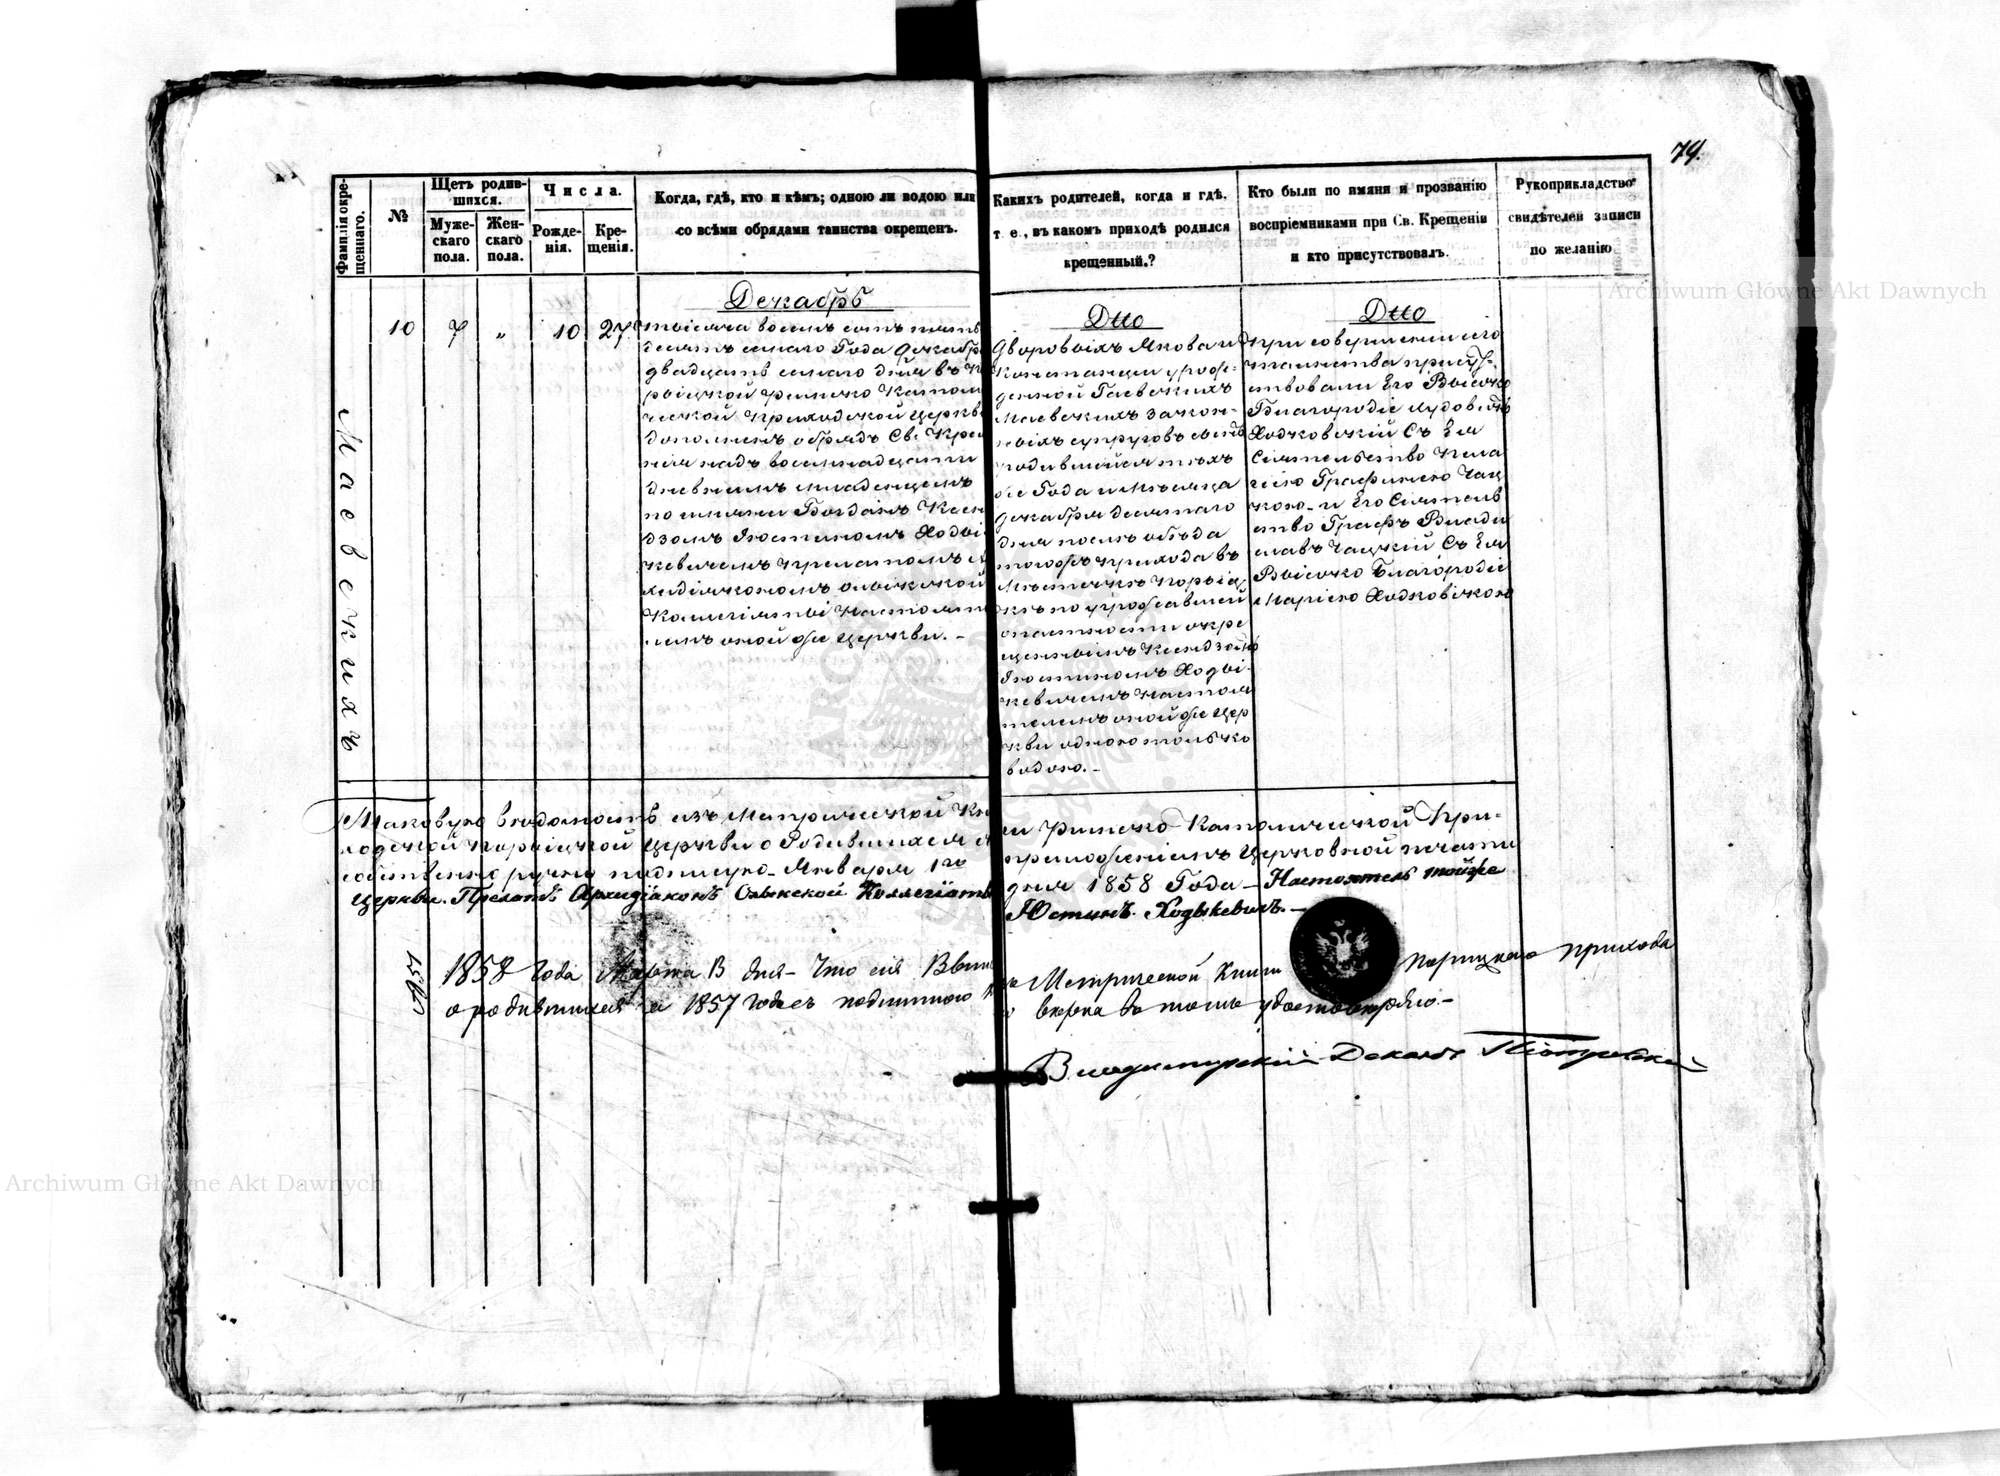 74.
Фамилія окре-
щеннаго.
№
Щетъ родив-
шихся.
Муже-
скаго
пола.
Жен-
скаго
пола.
Числа.
Рожде-
нія.
Кре-
щенія.
Когда, гдѣ, кто и кѣмъ; одною ли водою или
со всѣми обрядами таинства окрещенъ.
Какихъ родителей, когда и гдѣ,
т. е., въ какомъ приходѣ родился
крещенный.?
Кто были по имяни и прозванію
воспріемниками при Св. Крещеніи
и кто присутствовалъ.
Рукоприкладство
свидѣтелей записи
по желанію
Маевскихъ
10 7 „ 10 27
Декабрь
тысяча восемь сотъ пять
десятъ седмаго Года Декабр
двадцать седмаго дня въ По
рыцкой Римско Катол
ческой Приходской Церкв
дополненъ обрядъ Св. Кре
нія надъ восемнадцати
дневнымъ младенцемъ
по имяни Богданъ Ксен
дзомъ Юстиномъ Ходы
кевичемъ Прелатомъ А
хидіякономъ Олыкской
Коллегіяты Настояте
лемъ оной же Церкви. –
Dtto
Дворовыхъ Якова и
Констанціи урож-
денной Гаевскихъ
Маевскихъ закон-
ныхъ супруговъ сынъ
родившейся тѣхъ
же Года и мѣсяца
Декабря десятаго
дня послѣ обѣда
тогожъ прихода въ
Мѣстечкѣ Порыц-
кѣ по угрожавшей
опасности окре
щенный Ксендзомъ
Юстиномъ Ходы-
кевичемъ Настоя
телемъ оной же Цер
кви одною только
водою. –
Dtto
При совершеніи сего
таинства присут-
ствовали Его Высоко
Благородіе Людовикъ
Ходковскій Съ Ея
Сіятельство Пела
гіею Графинею Чац
кою – и Его Сіятель
ство Графъ Влади
славъ Чацкій Съ Ея
Высоко Благородіе
Маріею Ходковскою
Таковую вѣдомость изъ Метрической Кн
ги Римско-Католической При-
ходской Порыцкой Церкви о Родившихся
приложеніемъ Церковной печати
собственно ручно подписую – Января 1го
дня 1858 Года – Настоятель тойже
Церкви. Прелатъ Архидіаконъ Олыкской Коллегіаты
Юстинъ Ходыкевичъ. –
1858 года Марта В дня – Что сія
Метрической Книги Порицкаго прихода
о родившихся за 1857 годъ съ подлинною
вѣрна въ томъ удостовѣряю. –
Владимирскій Деканъ